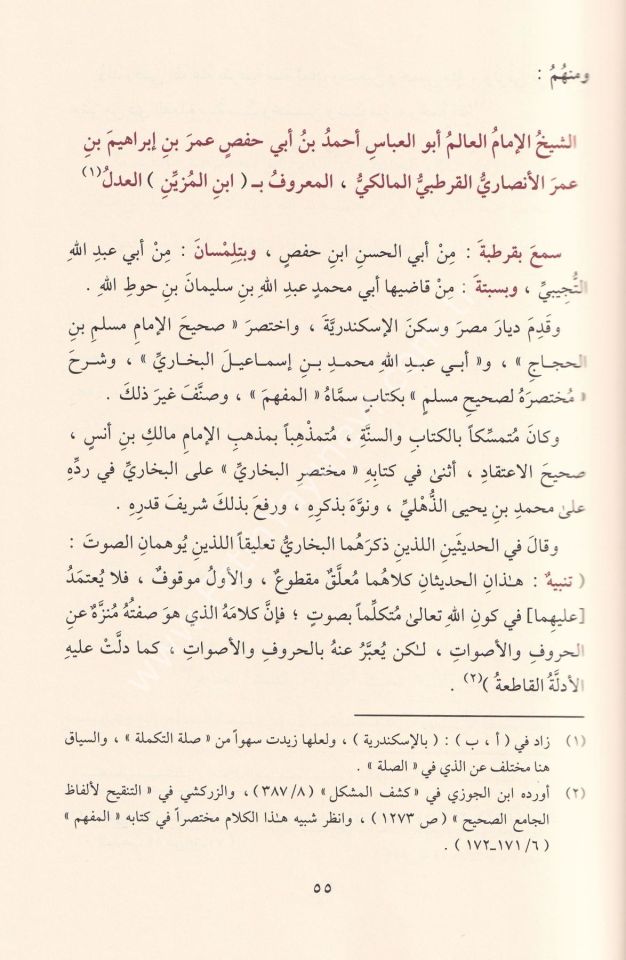 ومنهُمُ :
الشيخُ الإمامُ العالمُ أبو العباسِ أحمدُ بنُ أبي حفصٍ عمرَ بنِ إبراهيمَ بنِ
عمرَ الأنصاريُّ القرطبيُّ المالكيُّ ، المعروفُ بـ ( ابنِ المُزيِّنِ ) العدلُ(١)
سمعَ بقرطبةَ : مِنْ أبي الحسنِ ابنِ حفصٍ ، وبتِلِمْسانَ : مِنْ أبي عبدِ اللهِ
التُّجِيبيِّ ، وبسبتةَ : مِنْ قاضيها أبي محمدٍ عبدِ اللهِ بنِ سليمانَ بنِ حوطِ اللهِ .
وقَدِمَ ديارَ مصرَ وسكنَ الإسكندريَّةَ ، واختصرَ « صحيحَ الإمامِ مسلمِ بنِ
الحجاجِ » ، و« أبـي عبـدِ اللهِ محمـدِ بـنِ إسمـاعيـلَ البخـاريِّ » ، وشـرحَ
« مُختصرَهُ لصحيحِ مسلمٍ » بكتابٍ سمَّاهُ « المفهمَ » ، وصنَّفَ غيرَ ذلكَ .
وكانَ مُتمسِّكاً بالكتابِ والسنَّةِ ، مُتمذْهِباً بمذهبِ الإمامِ مالكِ بنِ أنسٍ ،
صحيحَ الاعتقادِ ، أثنىٰ في كتابِهِ « مختصرِ البخاريِّ » على البخاريِّ في ردِّهِ
علىٰ محمدِ بنِ يحيى الذُّهْليِّ ، ونوَّهَ بذكرِهِ ، ورفعَ بذلكَ شريفَ قدرِهِ .
وقالَ في الحديثَينِ اللذينِ ذكرَهُما البخاريُّ تعليقاً اللذينِ يُوهمانِ الصوتَ :
( تنبيهٌ : هـٰذانِ الحديثانِ كلاهُما مُعلَّقٌ مقطوعٌ ، والأولُ موقوفٌ ، فلا يُعتمَدُ
[عليهِما] في كونِ اللهِ تعالىٰ مُتكلِّماً بصوتٍ ؛ فإنَّ كلامَهُ الذي هوَ صفتُهُ مُنزَّهٌ عنِ
الحروفِ والأصواتِ ، لـٰكن يُعبَّرُ عنهُ بالحروفِ والأصواتِ ، كما دلَّتْ عليهِ
الأدلَّةُ القاطعةُ )(٢) .
(١) زاد في ( أ ، ب ) : ( بالإسكندرية ) ، ولعلها زيدت سهواً من « صلة التكملة » ، والسياق
هنا مختلف عن الذي في « الصلة » .
(٢) أورده ابن الجوزي في «كشف المشكل » (٨/ ٣٨٧) ، والزركشي في « التنقيح لألفاظ
الجامع الصحيح » ( ص ١٢٧٣ ) ، وانظر شبيه هـٰذا الكلام مختصراً في كتابه « المفهم »
( ٦/ ١٧١ـ١٧٢ ) .
٥٥